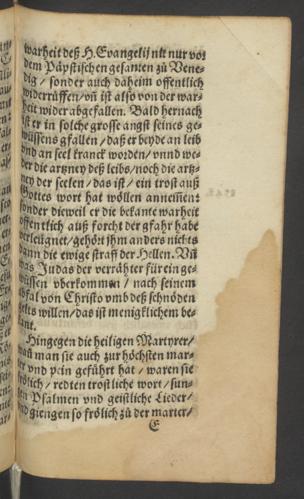 warheit deß H. Evangelij nit nur vor
dem Päpstischen gesanten zů Vene-
dig / sonder auch daheim offentlich
widerrüffen / vñ ist also von der war-
heit wider abgefallen. Bald hernach
ist er in solche grosse angst seines ge-
wüssens gfallen / daß er beyde an leib
vnd an seel kranck worden / vnnd we-
der die artzney deß leibs / noch die artz-
ney der seelen / das ist / ein trost auß
Gottes wort hat wöllen annemen:
sonder dieweil er die bekante warheit
offentlich auß forcht der gfahr habe
verleügnet / gehöre jhm anders nichts
dann die ewige straff der Hellen. Vñ
was Judas der verrähter für ein ge-
wüssen vberkommen / nach seinem
abfal von Christo vmb deß schnöden
gelts willen / das ist menigklichem be-
kant.
Hingegen die heiligen Martyrer /
wañ man sie auch zur höchsten mar-
ter vnd pein geführt hat / waren sie
frölich / redten trostliche wort / sun-
gen Psalmen vnd geistliche Lieder /
vnd giengen so frölich zů der marter /
E